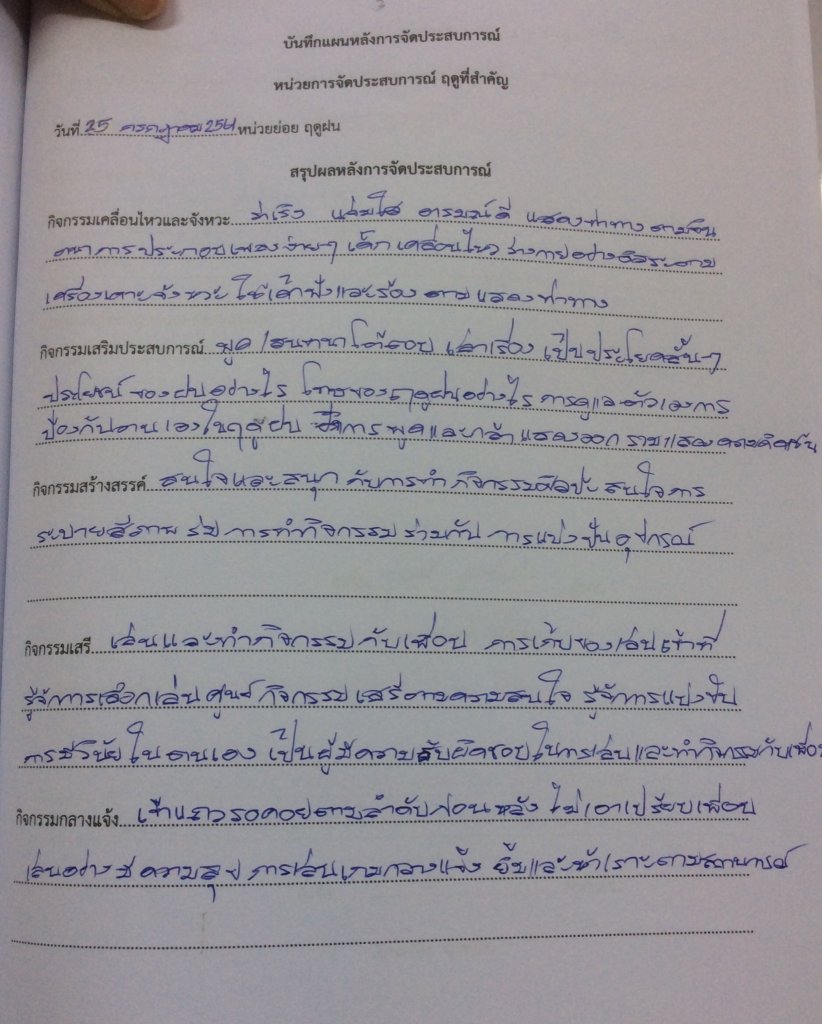 บันทึกแผนหลังการจัดประสบการณ์
หน่วยการจัดประสบการณ์ ฤดูที่สำคัญ
วันที่ 25 กรกฎาคม 256 หน่วยย่อย ฤดูฝน
สรุปผลหลังการจัดประสบการณ์
กิจกรรมเคลื่อนไหวและจังหวะ ร่าเริง แจ่มใส อารมณ์ดี แสดงท่าทางตามจิน
ตนาการประกอบเพลงง่ายๆ เด็กเคลื่อนไหวร่างกายอย่างอิสระตาม
เครื่องเคาะจังหวะ ให้เด็กฟังและร้องตามแสดงท่าทาง
กิจกรรมเสริมประสบการณ์ พูด/สนทนาโต้ตอบ เล่าเรื่อง เป็นประโยคสั้นๆ
ประโยชน์ของฝนอย่างไร โทษของฤดูฝนอย่างไร การดูแลตัวเองการ
ป้องกันตนเองในฤดูฝน มีการพูดและกล้าแสดงออก ร่วมแสดงความคิดเห็น
กิจกรรมสร้างสรรค์ สนใจและสนุกกับการทำกิจกรรมศิลปะ สนใจการ
ระบายสีภาพร่ม การทำกิจกรรมร่วมกัน การแบ่งปันอุปกรณ์
กิจกรรมเสรี เล่นและทำกิจกรรมกับเพื่อน การเก็บของเล่นเข้าที่
รู้จักการเลือกเล่นศูนย์กิจกรรมเสรีตามความสนใจ รู้จักการแบ่งปัน
การมีวินัยในตนเอง เป็นผู้มีความรับผิดชอบในการเล่นและทำกิจกรรมกับเพื่อน
กิจกรรมกลางแจ้ง เข้าแถวรอคอยตามลำดับก่อนหลัง ไม่เอาเปรียบเพื่อน
เล่นอย่างมีความสุข การเล่นเกมกลางแจ้ง ยิ้มและหัวเราะตามสถานการณ์